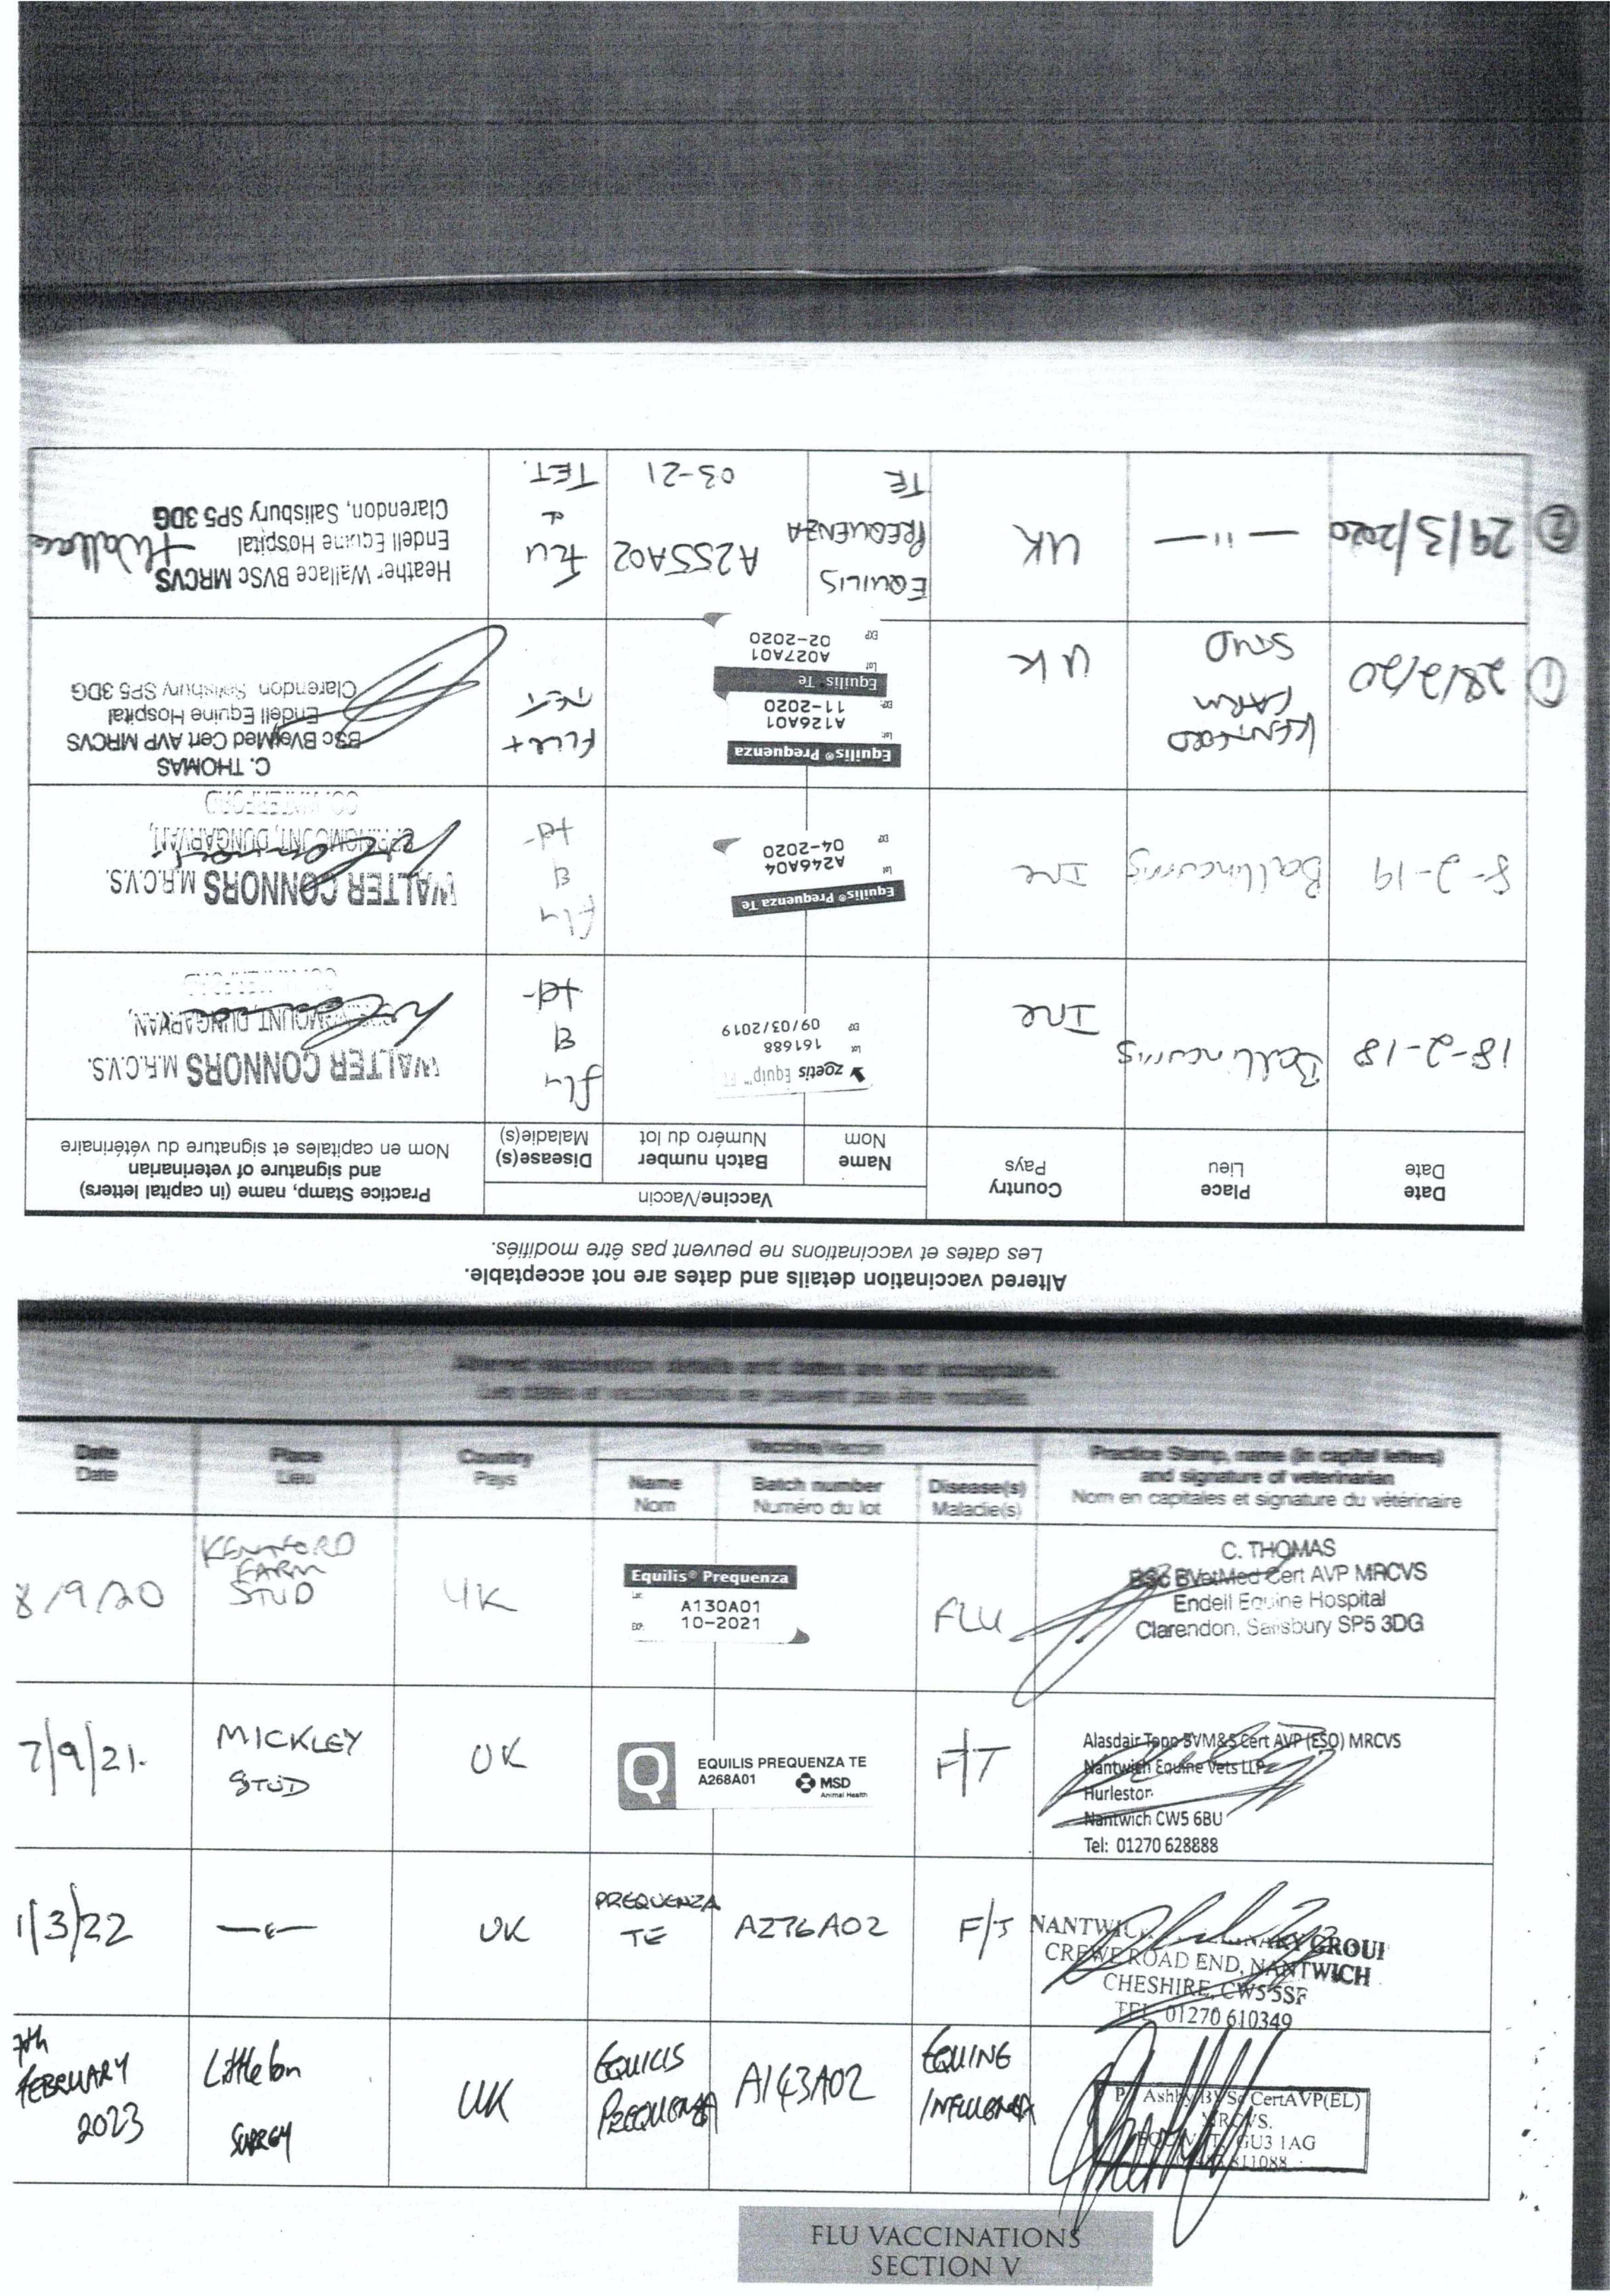 Altered vaccination details and dates are not acceptable.
Les dates et vaccinations ne peuvent pas être modifiés.
Date
Date
Place
Lieu
Country
Pays
Vaccine/Vaccin
Name
Nom
Batch number
Numéro du lot
Disease(s)
Maladie(s)
Practice Stamp, name (in capital letters)
and signature of veterinarian
Nom en capitales et signature du vétérinaire
18-2-18
Ire
zoetis Equip™
Lot
161688
EXP
09/03/2019
flu
&
tet-
WALTER CONNORS M.R.C.V.S.
DUNGARVAN,
8-2-19
Ire
Equilis® Prequenza Te
Lot
A246A04
EXP
04-2020
flu
&
tet-
WALTER CONNORS M.R.C.V.S.
DUNGARVAN,
CO. WATERFORD
① 28/2/20
KENTFORD
FARM
STUD
UK
Equilis® Prequenza
Lot:
A126A01
EXP:
11-2020
Equilis® Te
Lot
A027A01
EXP
02-2020
FLU +
TET
C. THOMAS
BSc BVetMed Cert AVP MRCVS
Endell Equine Hospital
Clarendon, Salisbury SP5 3DG
② 29/3/2020
— 11 —
UK
EQUILIS
PREQUENZA
TE
A255A02
03-21
FLU
&
TET.
Heather Wallace BVSc MRCVS
Endell Equine Hospital
Clarendon, Salisbury SP5 3DG
HWallace
Altered vaccination details and dates are not acceptable.
Les dates et vaccinations ne peuvent pas être modifiés.
Date
Date
Place
Lieu
Country
Pays
Vaccine/Vaccin
Name
Nom
Batch number
Numéro du lot
Disease(s)
Maladie(s)
Practice Stamp, name (in capital letters)
and signature of veterinarian
Nom en capitales et signature du vétérinaire
8/9/20
KENTFORD
FARM
STUD
UK
Equilis® Prequenza
Lot:
A130A01
EXP:
10-2021
FLU
C. THOMAS
BSc BVetMed Cert AVP MRCVS
Endell Equine Hospital
Clarendon, Salisbury SP5 3DG
7/9/21.
MICKLEY
STUD
UK
Q
EQUILIS PREQUENZA TE
A268A01
MSD
Animal Health
F/T
Alasdair Topp BVM&S Cert AVP (ESO) MRCVS
Nantwich Equine Vets LLP
Hurleston
Nantwich CW5 6BU
Tel: 01270 628888
1/3/22
UK
PREQUENZA
TE
A276A02
F/T
NANTWICH GROUP
CREWE ROAD END, NANTWICH
CHESHIRE, CW5 5SF
TEL 01270 610349
7th
FEBRUARY
2023
Littleton
SURREY
UK
EQUILIS
PREQUENZA
A143A02
EQUINE
INFLUENZA
Ashby BVSc CertAVP(EL)
MRCVS.
GU3 1AG
811088
FLU VACCINATIONS
SECTION V